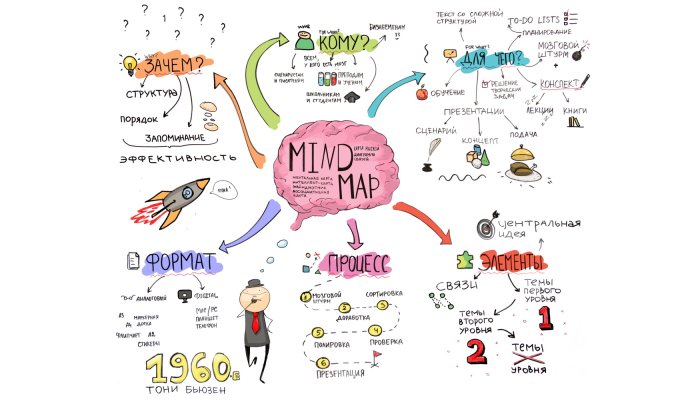 MIND
MAP
КАРТА МЫСЛЕЙ
ДИАГРАММА
СВЯЗЕЙ
МЕНТАЛЬНАЯ КАРТА
ИНТЕЛЛЕКТ-КАРТА
АССОЦИАТИВНАЯ
КАРТА
? ? ? ? ? ? ?
ЗАЧЕМ?
СТРУКТУРА
ПОРЯДОК
ЗАПОМИНАНИЕ
ЭФФЕКТИВНОСТЬ
FOR WHOM?
КОМУ?
БИЗНЕСМЕНАМ
ВСЕМ,
У КОГО ЕСТЬ МОЗГ
СЦЕНАРИСТАМ
И ПИСАТЕЛЯМ
ПРЕПОДАМ
И УЧЕНЫМ
ШКОЛЬНИКАМ
И СТУДЕНТАМ
FOR WHAT?
ДЛЯ ЧЕГО?
ТЕКСТ СО СЛОЖНОЙ
СТРУКТУРОЙ
TO-DO LISTS
ПЛАНИРОВАНИЕ
МОЗГОВОЙ
ШТУРМ
+
КОНСПЕКТ
ЛЕКЦИИ
КНИГИ
ОБУЧЕНИЕ
РЕШЕНИЕ
ТВОРЧЕСКИХ
ЗАДАЧ
ПРЕЗЕНТАЦИИ
СЦЕНАРИЙ
КОНЦЕПТ
ПОДАЧА
ЭЛЕМЕНТЫ
ЦЕНТРАЛЬНАЯ
ИДЕЯ
СВЯЗИ
ТЕМЫ
ПЕРВОГО
УРОВНЯ
1
ТЕМЫ
ВТОРОГО
УРОВНЯ
2
ТЕМЫ
УРОВНЯ
ПРОЦЕСС
1
МОЗГОВОЙ
ШТУРМ
СОРТИРОВКА
2
3
ДОРАБОТКА
5
4
ПОЛИРОВКА
ПРОВЕРКА
6
ПРЕЗЕНТАЦИЯ
ФОРМАТ
МАРКЕРНАЯ
ДОСКА
ФЛИПЧАРТ
СТИКЕРЫ
ПЛАНШЕТ
ТЕЛЕФОН
1960-Е
ТОНИ БЬЮЗЕН